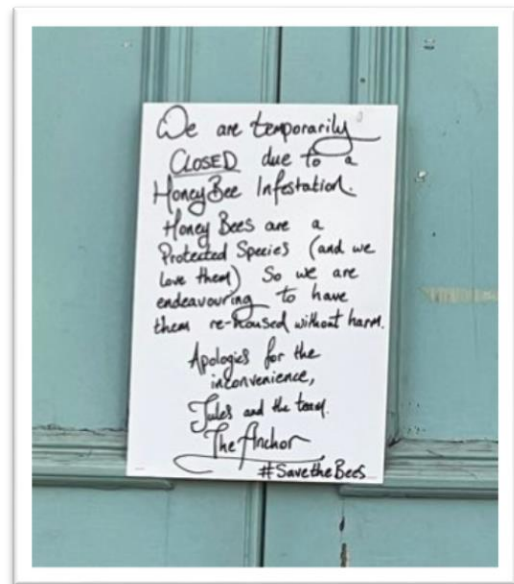 We are temporarily
CLOSED due to a
HoneyBee Infestation.
Honey Bees are a
Protected Species (and we
love them) So we are
endeavouring to have
them re-housed without harm.
Apologies for the
inconvenience,
Jules and the team.
The Anchor
#SavetheBees